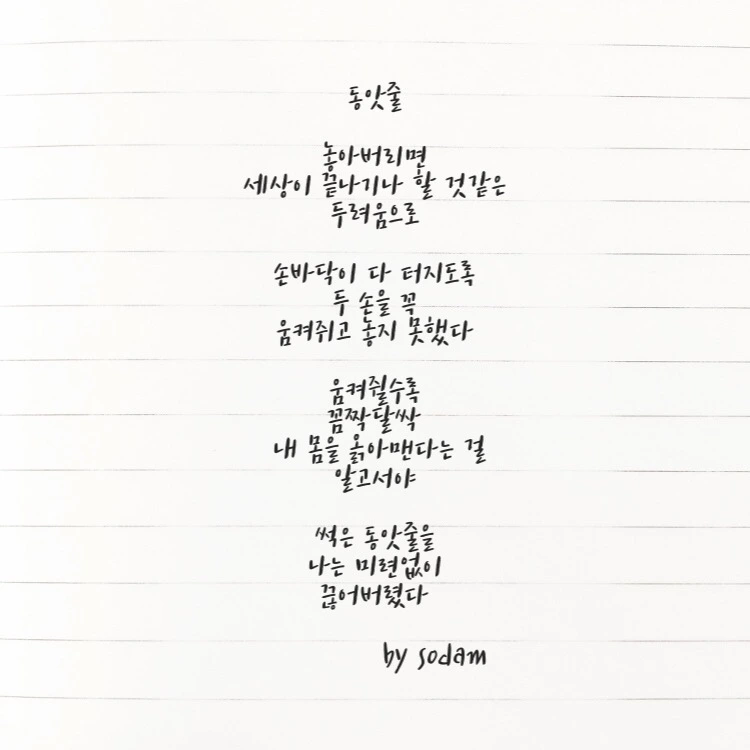 동앗줄
놓아버리면
세상이 끝나기나 할 것같은
두려움으로
손바닥이 다 터지도록
두 손을 꼭
움켜쥐고 놓지 못했다
움켜쥘수록
꼼짝달싹
내 몸을 옭아맨다는 걸
알고서야
썩은 동앗줄을
나는 미련없이
끊어버렸다
by sodam